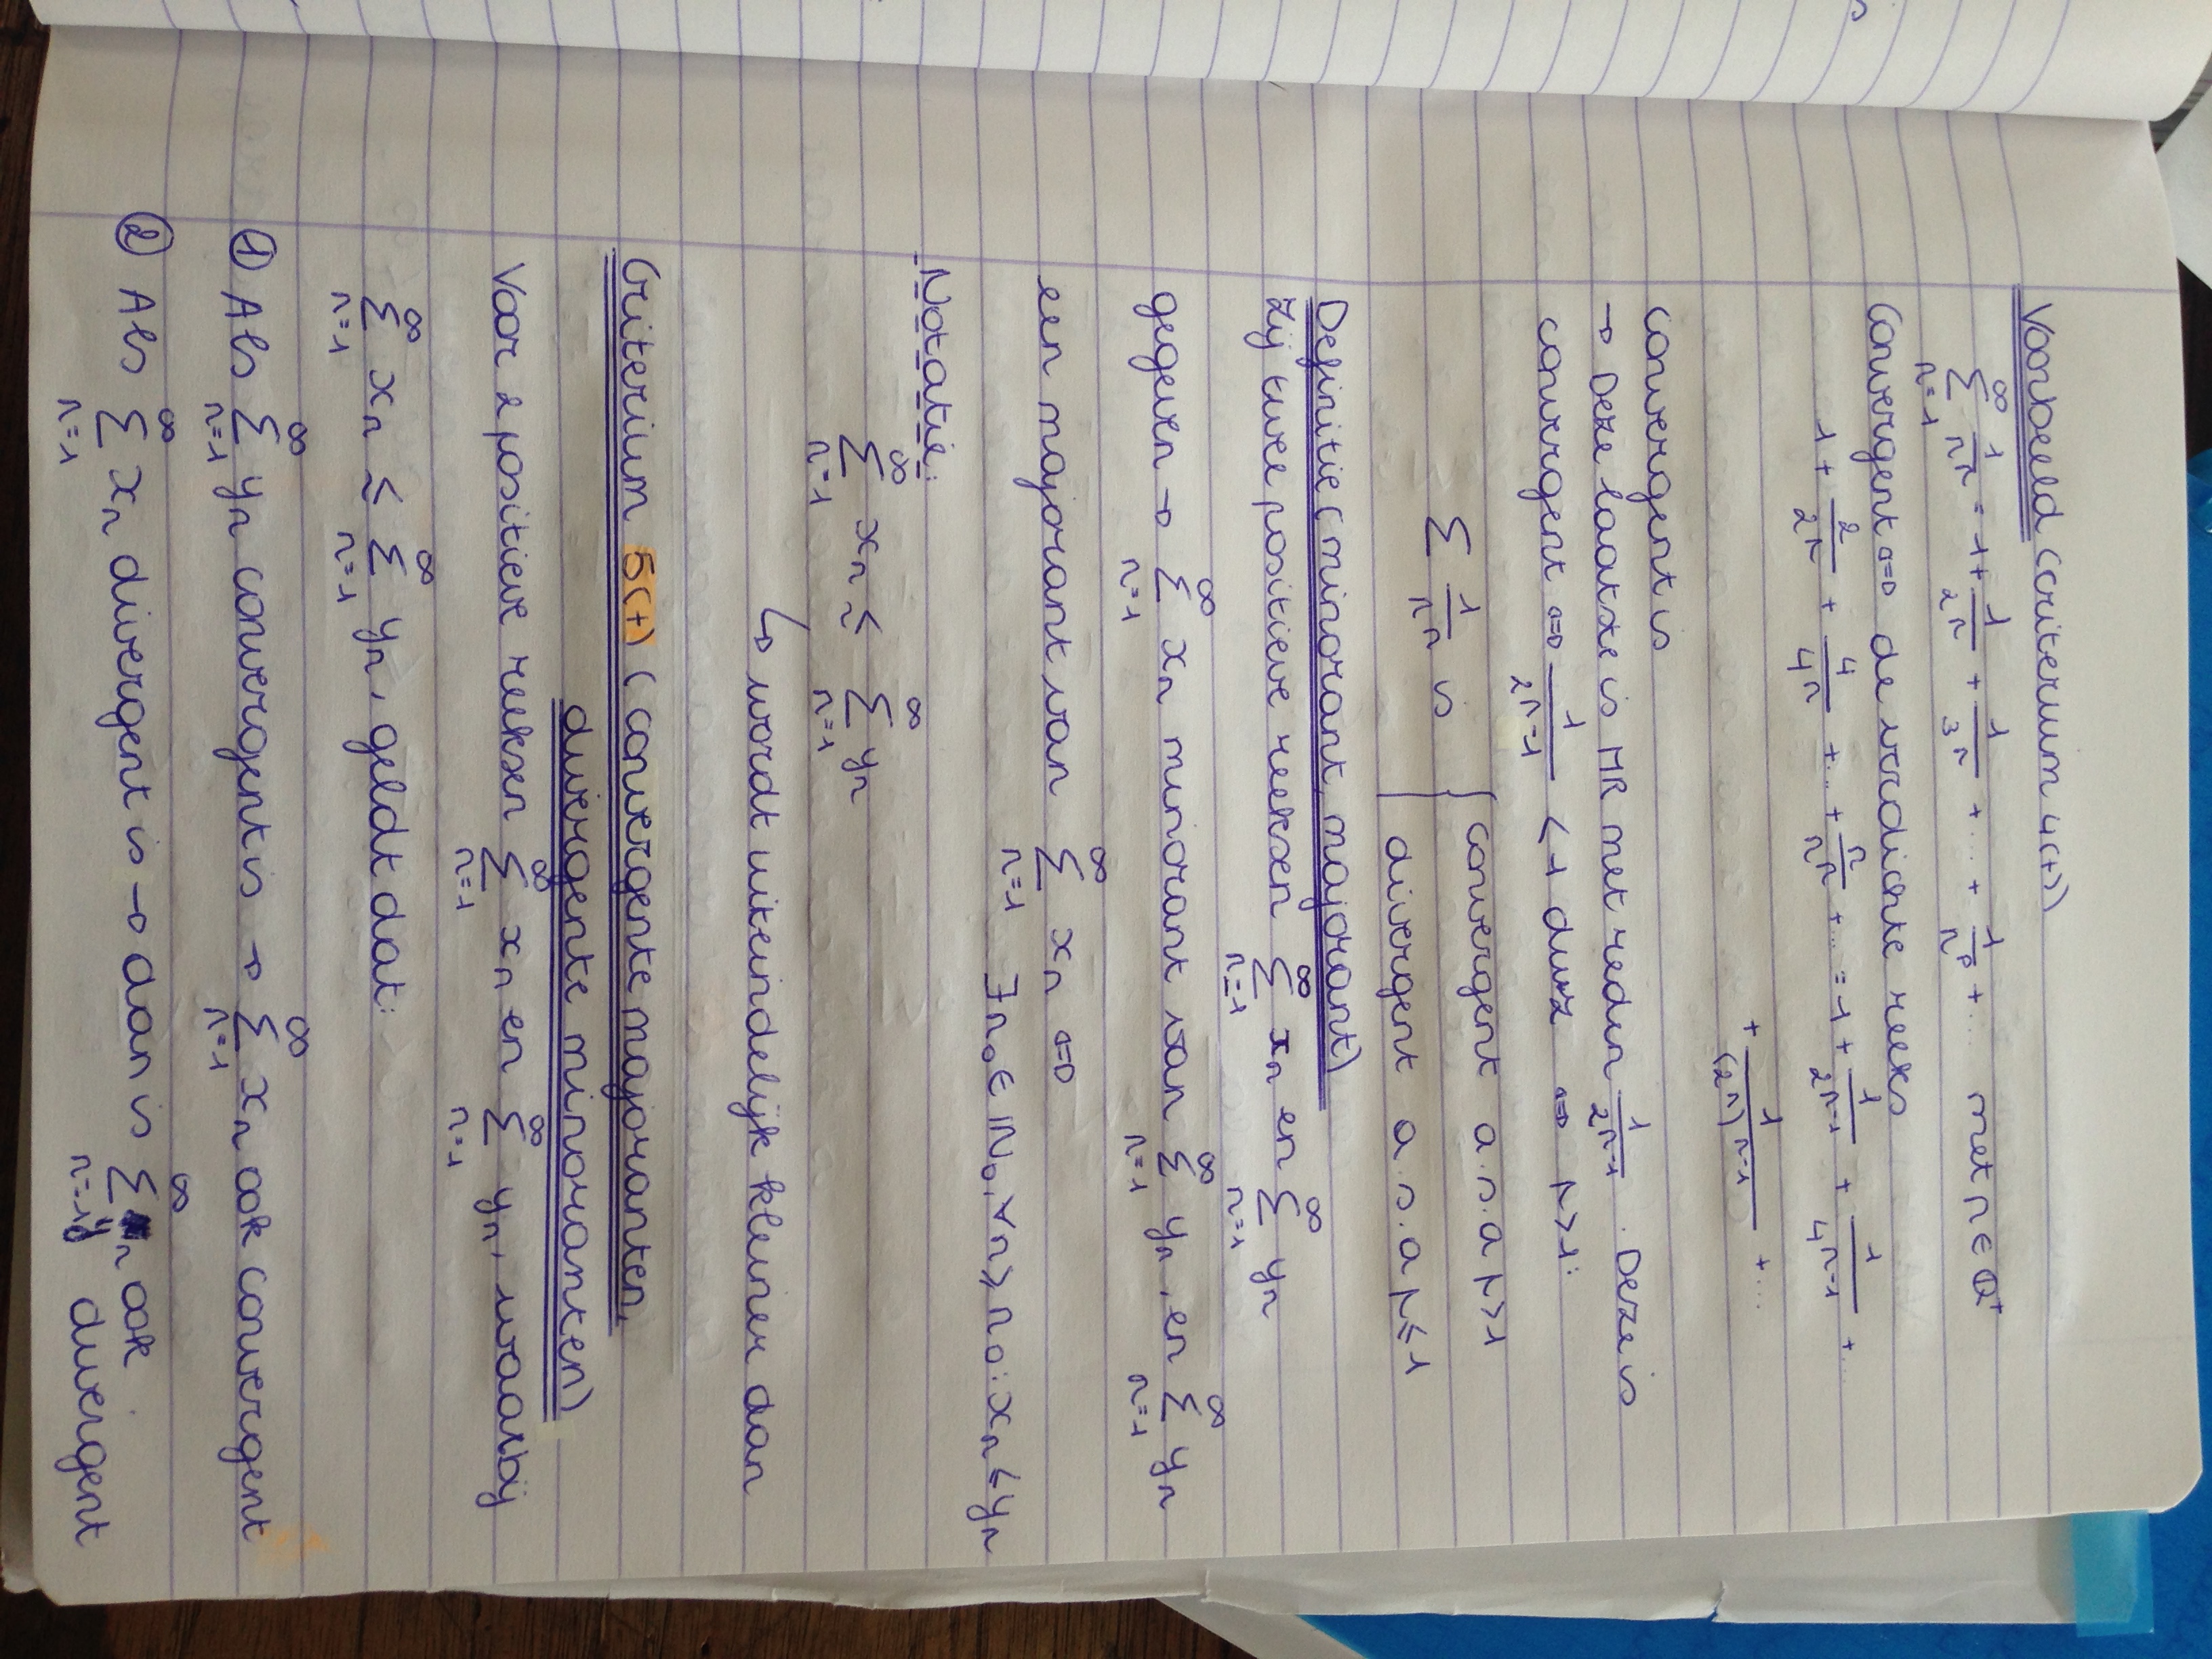 Voorbeeld (criterium 4(+))
∞∑n=1 1/n^r = 1 + 1/2^r + 1/3^r + ... + 1/n^p + ... met r ∈ Q⁺
Convergent ⇔ de verdichte reeks
1 + 2/2^r + 4/4^r + ... + n/n^r + ... = 1 + 1/2^(r-1) + 1/4^(r-1) + ...
+ 1/(2^n)^(r-1) + ...
convergent is
→ Deze laatste is MR met reden 1/2^(r-1). Deze is
convergent ⇔ 1/2^(r-1) < 1 dus ⇔ r > 1:
∑ 1/n^r is { convergent a.s.a r > 1
divergent a.s.a r ≤ 1
Definitie (minorant, majorant)
Zij twee positieve reeksen ∞∑n=1 xn en ∞∑n=1 yn
gegeven → ∞∑n=1 xn minorant van ∞∑n=1 yn, en ∞∑n=1 yn
een majorant van ∞∑n=1 xn ⇔
∃n₀ ∈ ℕ₀, ∀n ≥ n₀: xn ≤ yn
Notatie:
∞∑n=1 xn < ∞∑n=1 yn
↳ wordt uiteindelijk kleiner dan
Criterium 5(+) (convergente majoranten,
divergente minoranten)
Voor 2 positieve reeksen ∞∑n=1 xn en ∞∑n=1 yn, waarbij
∞∑n=1 xn ≤ ∞∑n=1 yn, geldt dat:
① Als ∞∑n=1 yn convergent is → ∞∑n=1 xn ook convergent
② Als ∞∑n=1 xn divergent is → dan is ∞∑n=1 yn ook
divergent